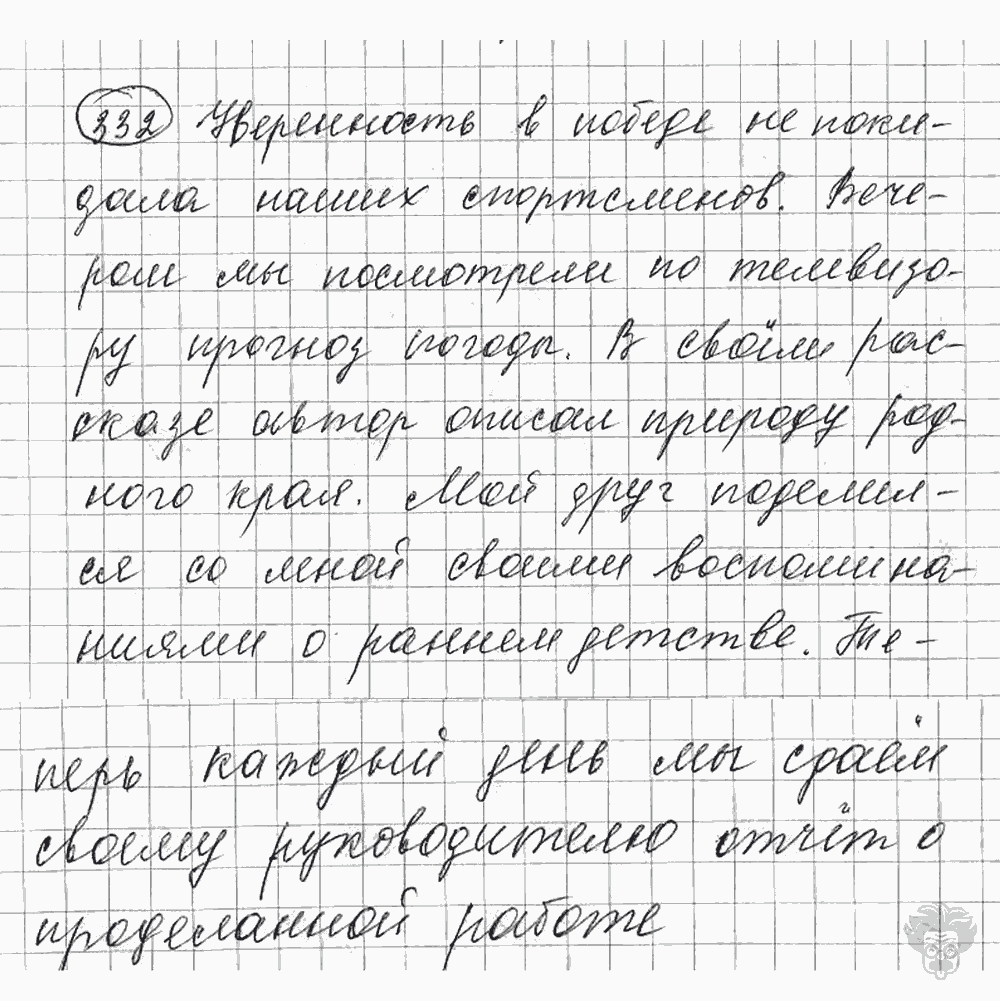 332 Уверенность в победе не поки-
дала наших спортсменов. Вече-
ром мы посмотрели по телевизо-
ру прогноз погоды. В своём рас-
сказе автор описал природу род-
ного края. Мой друг поделил-
ся со мной своими воспомина-
ниями о раннем детстве. Те-
перь каждый день мы сдаём
своему руководителю отчёт о
проделанной работе